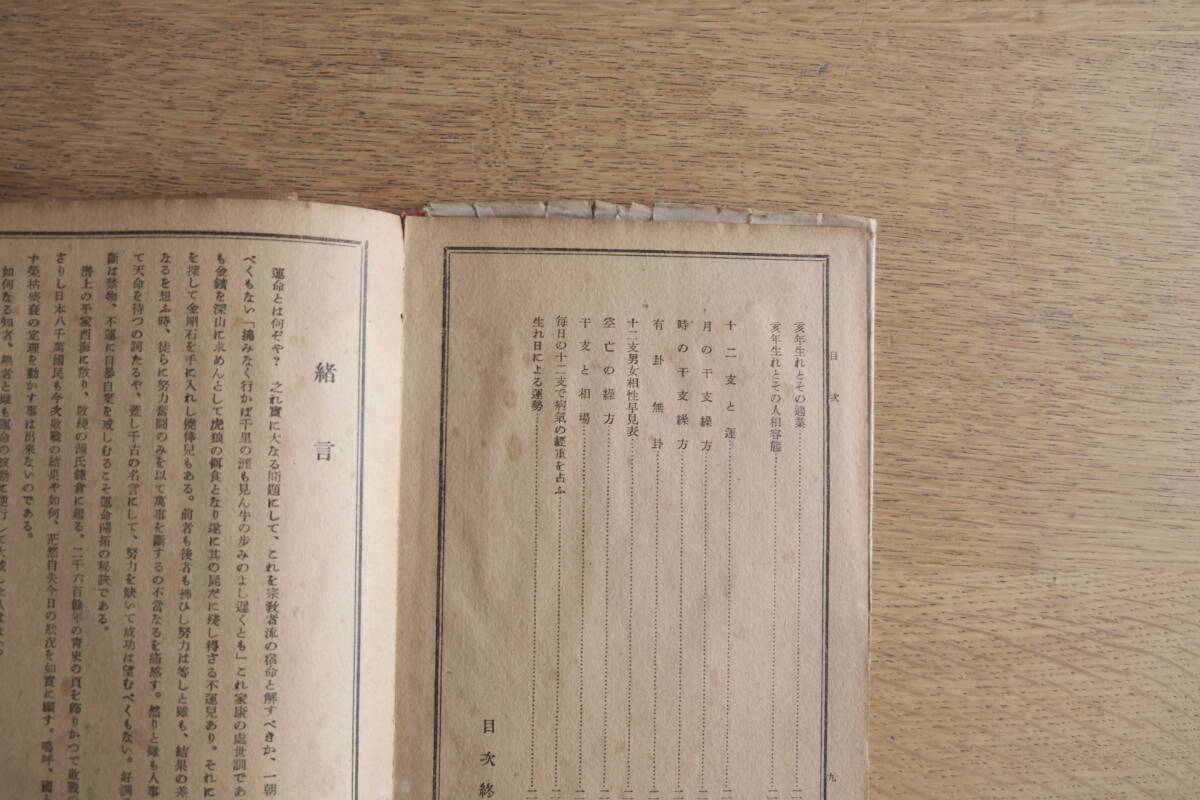 目次
九
亥年生れとその適業
亥年生れとその人相容態
十二支と運
月の干支繰方
時の干支繰方
有卦無卦
十二支男女相性早見表
空亡の繰方
干支と相場
毎日の十二支で病氣の輕重を占ふ
生れ日による運勢
目次終
緒言
運命とは何ぞや? これ實に大なる問題にして、これを宗教者流の宿命と解すべきか、一朝
べくもない「撓みなく行かば千里の涯も見ん牛の歩みのよし遲くとも」これ家康の處世訓であ
も金鑛を深山に求めんとして虎狼の餌食となり遂に其の屍だに殘し得ざる不運兒あり。それに
を探して金剛石を手に入れし僥倖兒もある。前者も後者も拂ひし努力は等しと雖も、結果の差
なるを想ふ時、徒らに努力奮鬪のみを以て萬事を斷するの不當なるを痛感す。然りと雖も人事
て天命を待つの訓たるや、蓋し千古の名言にして、努力を缺いて成功は望むべくもない。好調
斷は禁物、不運に自暴自棄を戒しむるこそ運命開拓の秘訣である。
潜上の平家西海に散り、敗殘の源氏鎌倉に起る。二千六百餘年の靑史の頁を飾りかつて敗戰の
さりし日本八千萬國民も今次敗戰の結果や如何、茫然自失今日の狀況を如實に顯す。嗚呼、國
榮枯衰の定理を動かす事は出來ないのである。
如何なる知者、學者と雖も運命の波動に逆行して